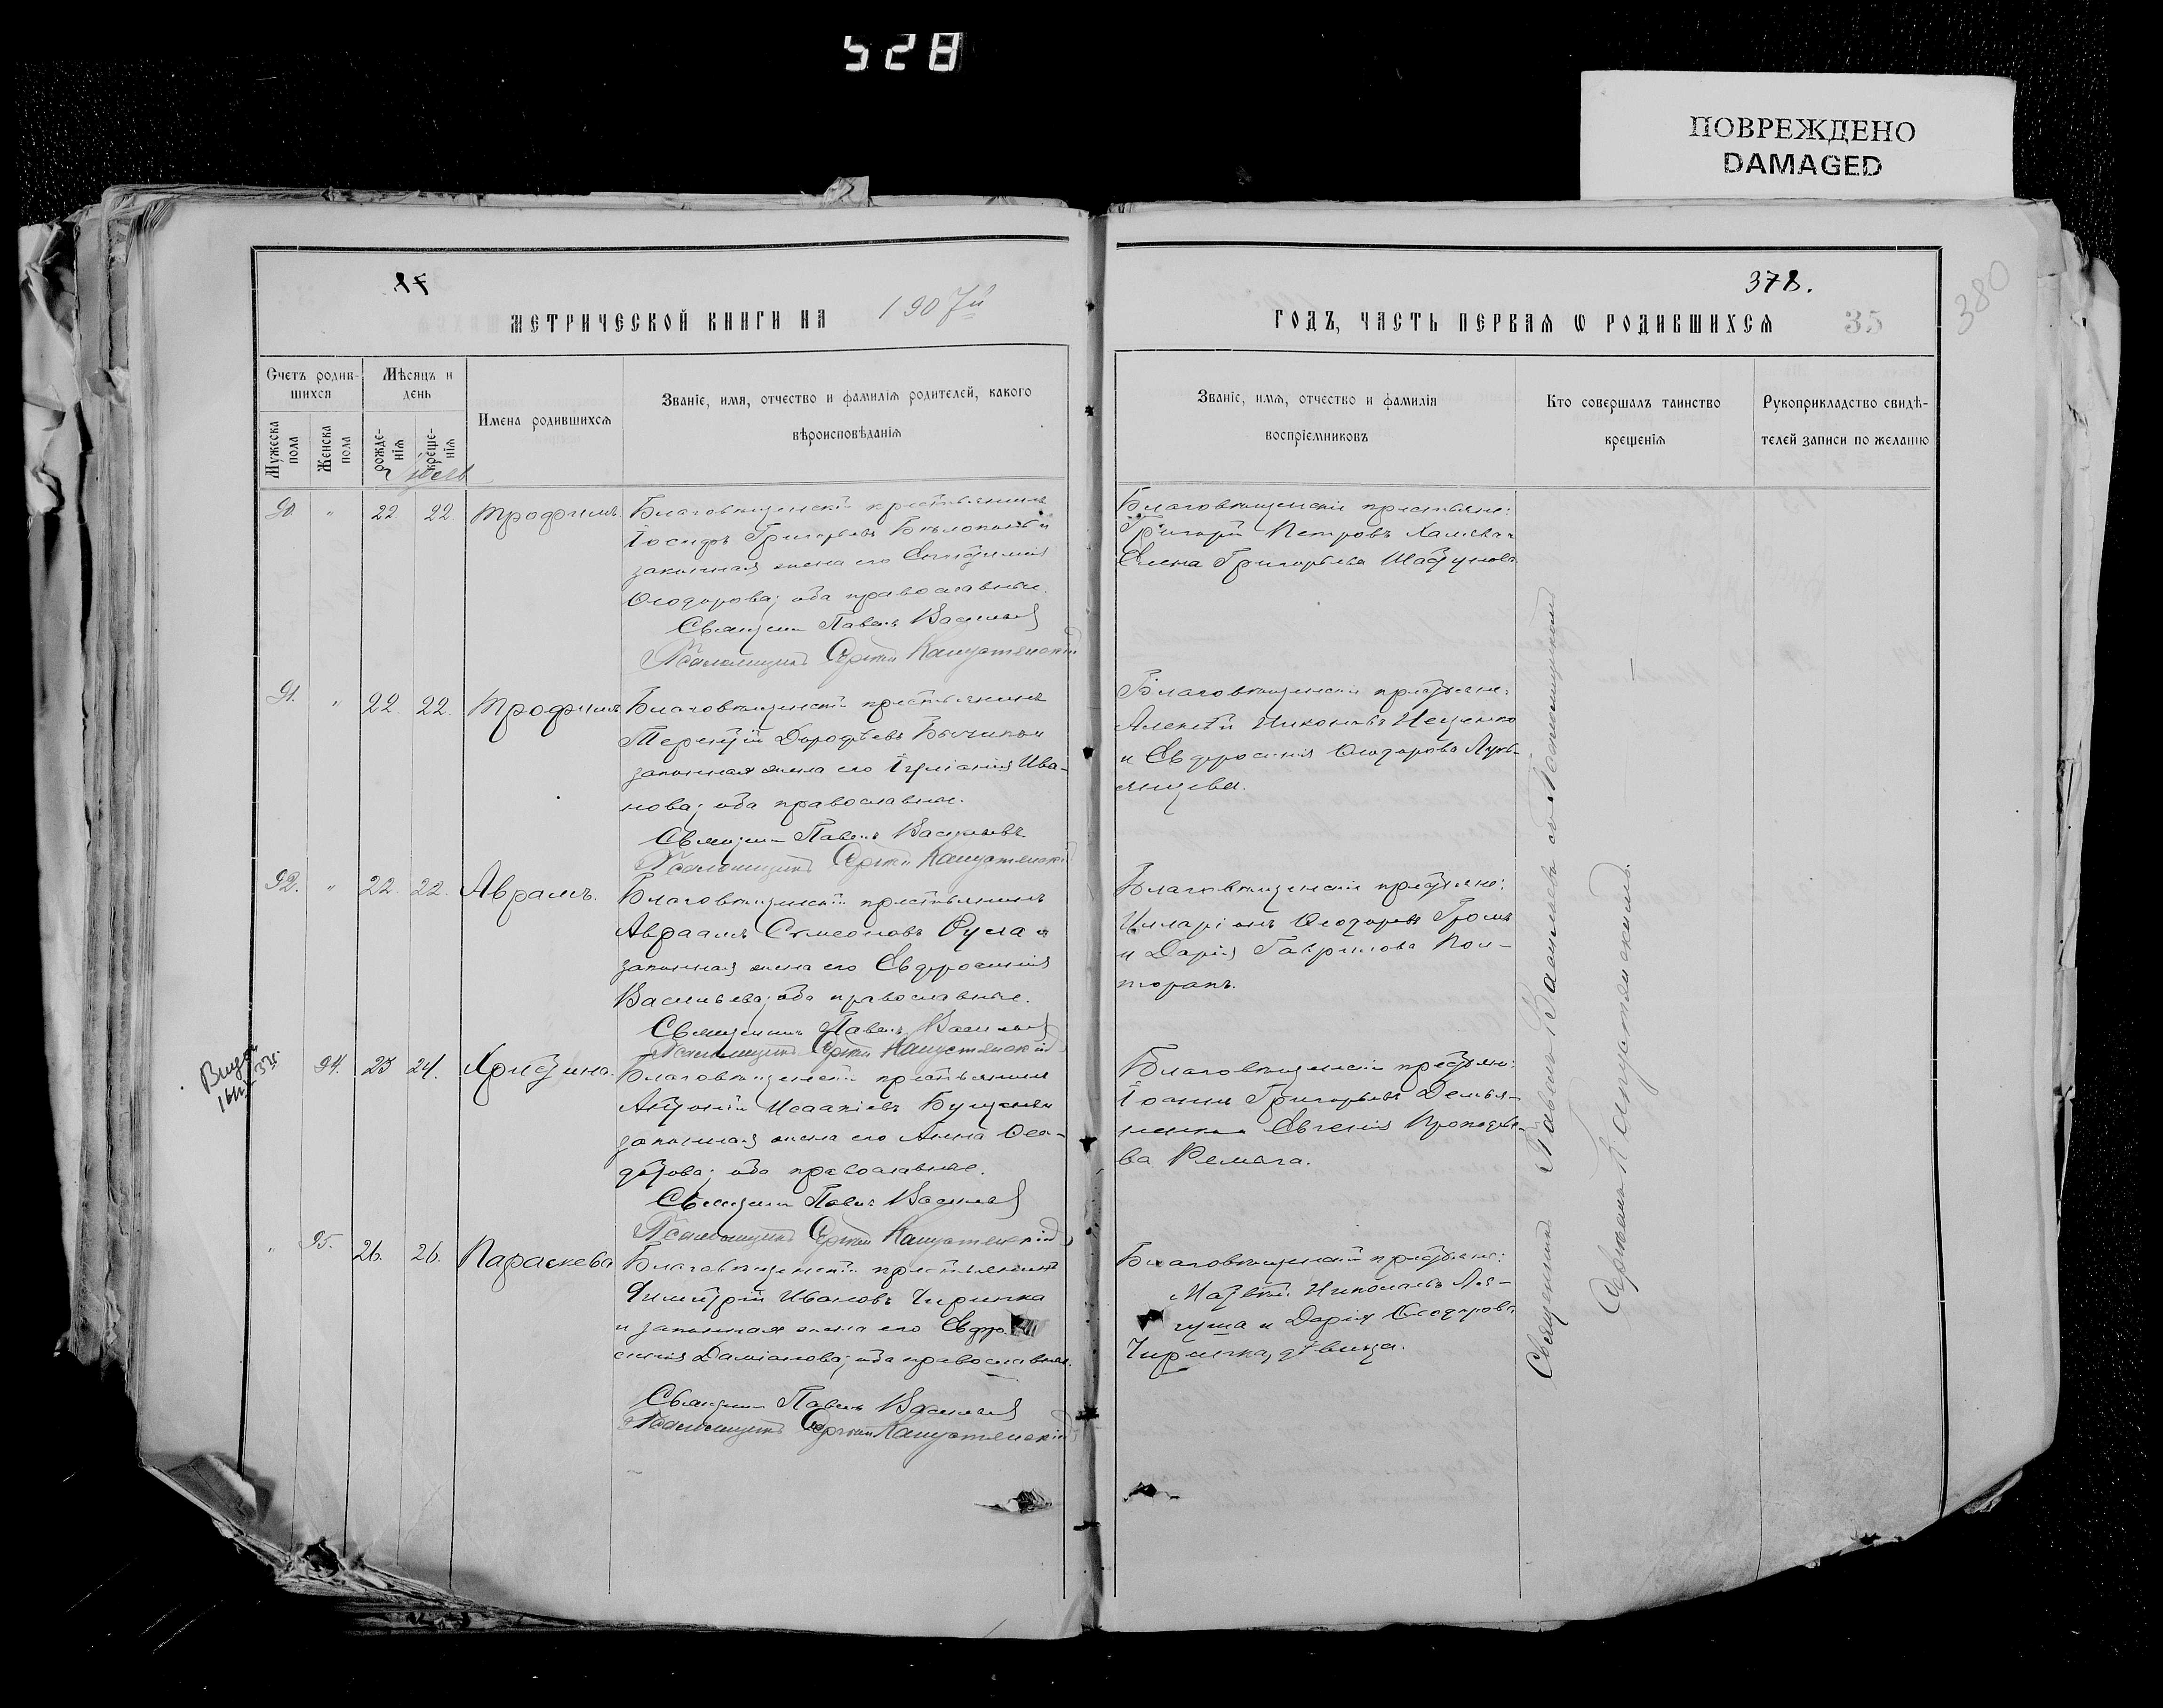 528
ПОВРЕЖДЕНО
DAMAGED
378.
380
МЕТРИЧЕСКОЙ КНИГИ НА 1907й
ГОДЪ, ЧАСТЬ ПЕРВАЯ Ѡ РОДИВШИХСЯ 35
Счетъ родив-
шихся
Мужеска пола
Женска пола
Мѣсяцъ и
день
рожде-
нія
креще-
нія
Имена родившихся
Званіе, имя, отчество и фамилія родителей, какого
вѣроисповѣданія
Званіе, имя, отчество и фамилія
воспріемниковъ
Кто совершалъ таинство
крещенія
Рукоприкладство свидѣ-
телей записи по желанію
90. " 22. 22. Трофимъ.
Благовѣщенскій крестьянинъ
Іосифъ Григорьевъ
законная жена его
Ѳеодорова; оба православные.
Священникъ Павелъ Васильевъ
Псаломщикъ Сергій Капустянскій
Благовѣщенскіе крестьяне:
Григорій Петровъ
Елена Григорьева
91. " 22. 22. Трофимъ
Благовѣщенскій крестьянинъ
Терентій Дорофѣевъ
законная жена его Іуліанія Ива-
нова; оба православные.
Священникъ Павелъ Васильевъ
Псаломщикъ Сергій Капустянскій
Благовѣщенскіе крестьяне:
Алексѣй Николаевъ Ищенко
и Евфросинія Ѳеодорова
92. " 22. 22. Аврамъ.
Благовѣщенскій крестьянинъ
Авраамъ Симеоновъ
законная жена его Евфросинія
Васильева; оба православные.
Священникъ Павелъ Васильевъ
Псаломщикъ Сергій Капустянскій
Благовѣщенскіе крестьяне:
Илларіонъ Ѳеодоровъ Громъ
и Дарія Гаврилова Пол-
торакъ.
94. 23 24. Христина.
Благовѣщенскій крестьянинъ
Антоній Исаакіевъ
законная жена его Анна Ѳео-
дотова; оба православные.
Священникъ Павелъ Васильевъ
Псаломщикъ Сергій Капустянскій
Благовѣщенскіе крестьяне:
Іоаннъ Григорьевъ Демья-
ненко Евгенія Прокофье-
ва
" 95. 26. 26. Параскева
Благовѣщенскій крестьянинъ
Димитрій Ивановъ Чиричка
и законная жена его Евфро
синія Даміанова; оба православные.
Священникъ Павелъ Васильевъ
Псаломщикъ Сергій Капустянскій
Благовѣщенскіе крестьяне:
Матвѣй Николаевъ Ля-
гуша и Дарія Ѳеодорова
Чиричка, дѣвица.
Священникъ Павелъ Васильевъ съ Псаломщикомъ
Сергіемъ Капустянскимъ.